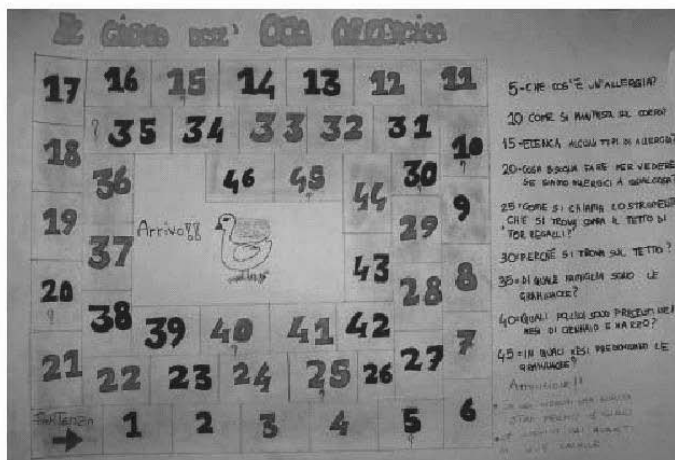 IL GIOCO DELL' OCA ALLERGICA
17 16 15 14 13 12 11
18 35 34 33 32 31 10
36 46 45 44 30 9
19 37 Arrivo!! 29
20 38 43 28 8
39 40 41 42 27 7
21 22 23 24 25 26
PARTENZA 1 2 3 4 5 6
5-CHE COS'È UN'ALLERGIA?
10 COME SI MANIFESTA SUL CORPO?
15-ELENCA ALCUNI TIPI DI ALLERGIA?
20-COSA BISOGNA FARE PER VEDERE
SE SIAMO ALLERGICI A QUALCOSA?
25=COME SI CHIAMA LO STRUMENTO
CHE SI TROVA SOPRA IL TETTO DI
TORREGALLI?
30=PERCHÉ SI TROVA SUL TETTO?
35=DI QUALE FAMIGLIA SONO LE
GRAMINACEE?
40=QUALI POLLINI SONO PRESENTI NEI
MESI DI GENNAIO E MARZO?
45=IN QUALI MESI PREDOMINANO LE
GRAMINACEE?
ATTENZIONE!!